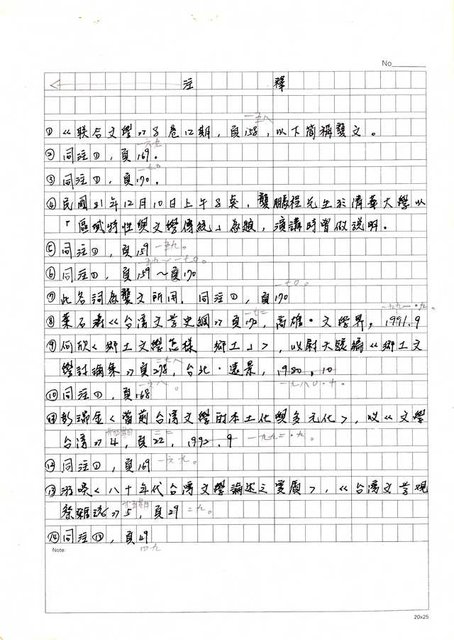 No
注 釋
① 《聯合文學》8卷12期，頁158，以下簡稱龔文。
一五八
② 同注①，頁169。
③ 同注①，頁170。
④ 民國81年12月10日上午8點，龔鵬程先生於清華大學以
「區域特性與文學傳統」為題，演講時曾做說明。
⑤ 同注①，頁159
一五九。
⑥ 同注①，頁159～頁170
⑦ 此名詞為龔文所用，同注①，頁170
一七〇。
⑧ 葉石濤《台灣文學史綱》頁172，高雄·文學界，1991.9
一九九一·九
⑨ 何欣〈鄉土文學怎樣「鄉土」〉，以尉天驄編《鄉土文
學討論集》頁278，台北·遠景，1980.10
⑩ 同注①，頁168
一六八。
⑪ 彭瑞金〈當前台灣文學的本土化與多元化〉，以《文學
台灣》4，頁22，1992.9
一九九二·九。
⑫ 同注①，頁169
一六九。
⑬ 游喚〈八十年代台灣文學論述之變質〉，《台灣文學觀
察雜誌》5，頁29
二九。
⑭ 同注⑬，頁49
四九
Note
20x25